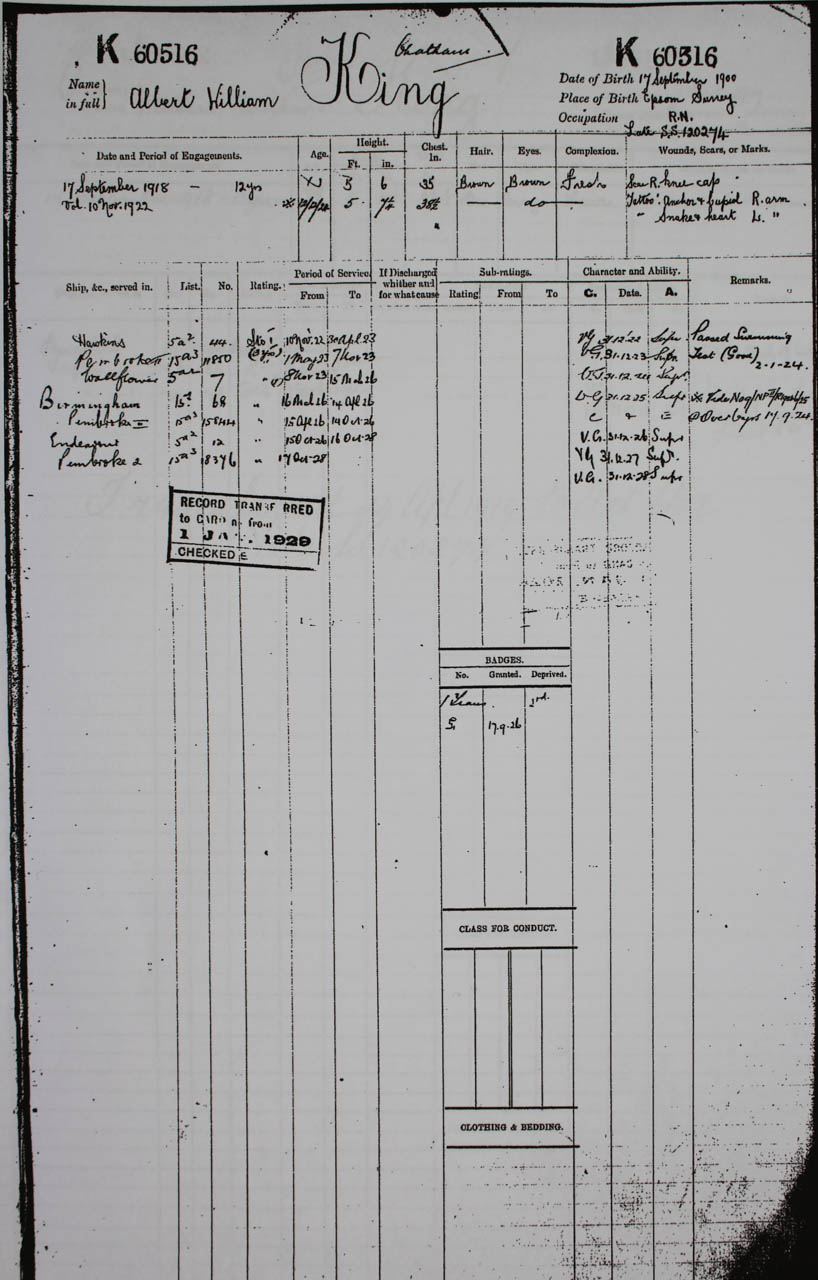 K 60516 Chatham K 60516
Name in full } Albert William King
Date of Birth 17 September 1900
Place of Birth Epsom Surrey
Occupation R.N.
Late S.S. 120274
Date and Period of Engagements. Age. Height. Ft. in. Chest. In. Hair. Eyes. Complexion. Wounds, Scars, or Marks.
17 September 1918 — 12 yrs 5 6 35 Brown Brown Fresh Scar R. knee cap
Vol. 10 Nov. 1922 5 — do — Tattoo: Anchor & Cupid R. arm
" Snake & heart L. "
Ship, &c., served in. List. No. Rating. Period of Service. From To If Discharged whither and for what cause Sub-ratings. Rating From To Character and Ability. C. Date. A. Remarks.
Hawkins 5a2 44 Sto 1 10 Nov. 22 30 Apl 23 VG 31.12.22 Supr Passed Swimming
Pembroke II 15a3 11850 " 1 May 23 7 Nov 23 V.G. 31.12.23 Supr Test (Good) 2-1-24.
Wallflower 5a2 7 " 8 Nov 23 15 Mch 26 V.G. 31.12.24 Supr
Birmingham 68 " 16 Mch 26 14 Apl 26 V.G 31.12.25 Supr
Pembroke II 15a3 15844 " 15 Apl 26 14 Oct 26 17.9.24.
Endeavour 5a2 12 " 15 Oct 26 16 Oct 28 V.G. 31.12.26 Supr
Pembroke 2 15a3 8376 " 17 Oct 28 VG 31.12.27 Supr.
V.G. 31.12.28 Supr
RECORD TRANSFERRED
to CARD from
1 JAN. 1929
CHECKED
BADGES.
No. Granted. Deprived.
1 Trans. 2nd.
G 17.9.26
CLASS FOR CONDUCT.
CLOTHING & BEDDING.